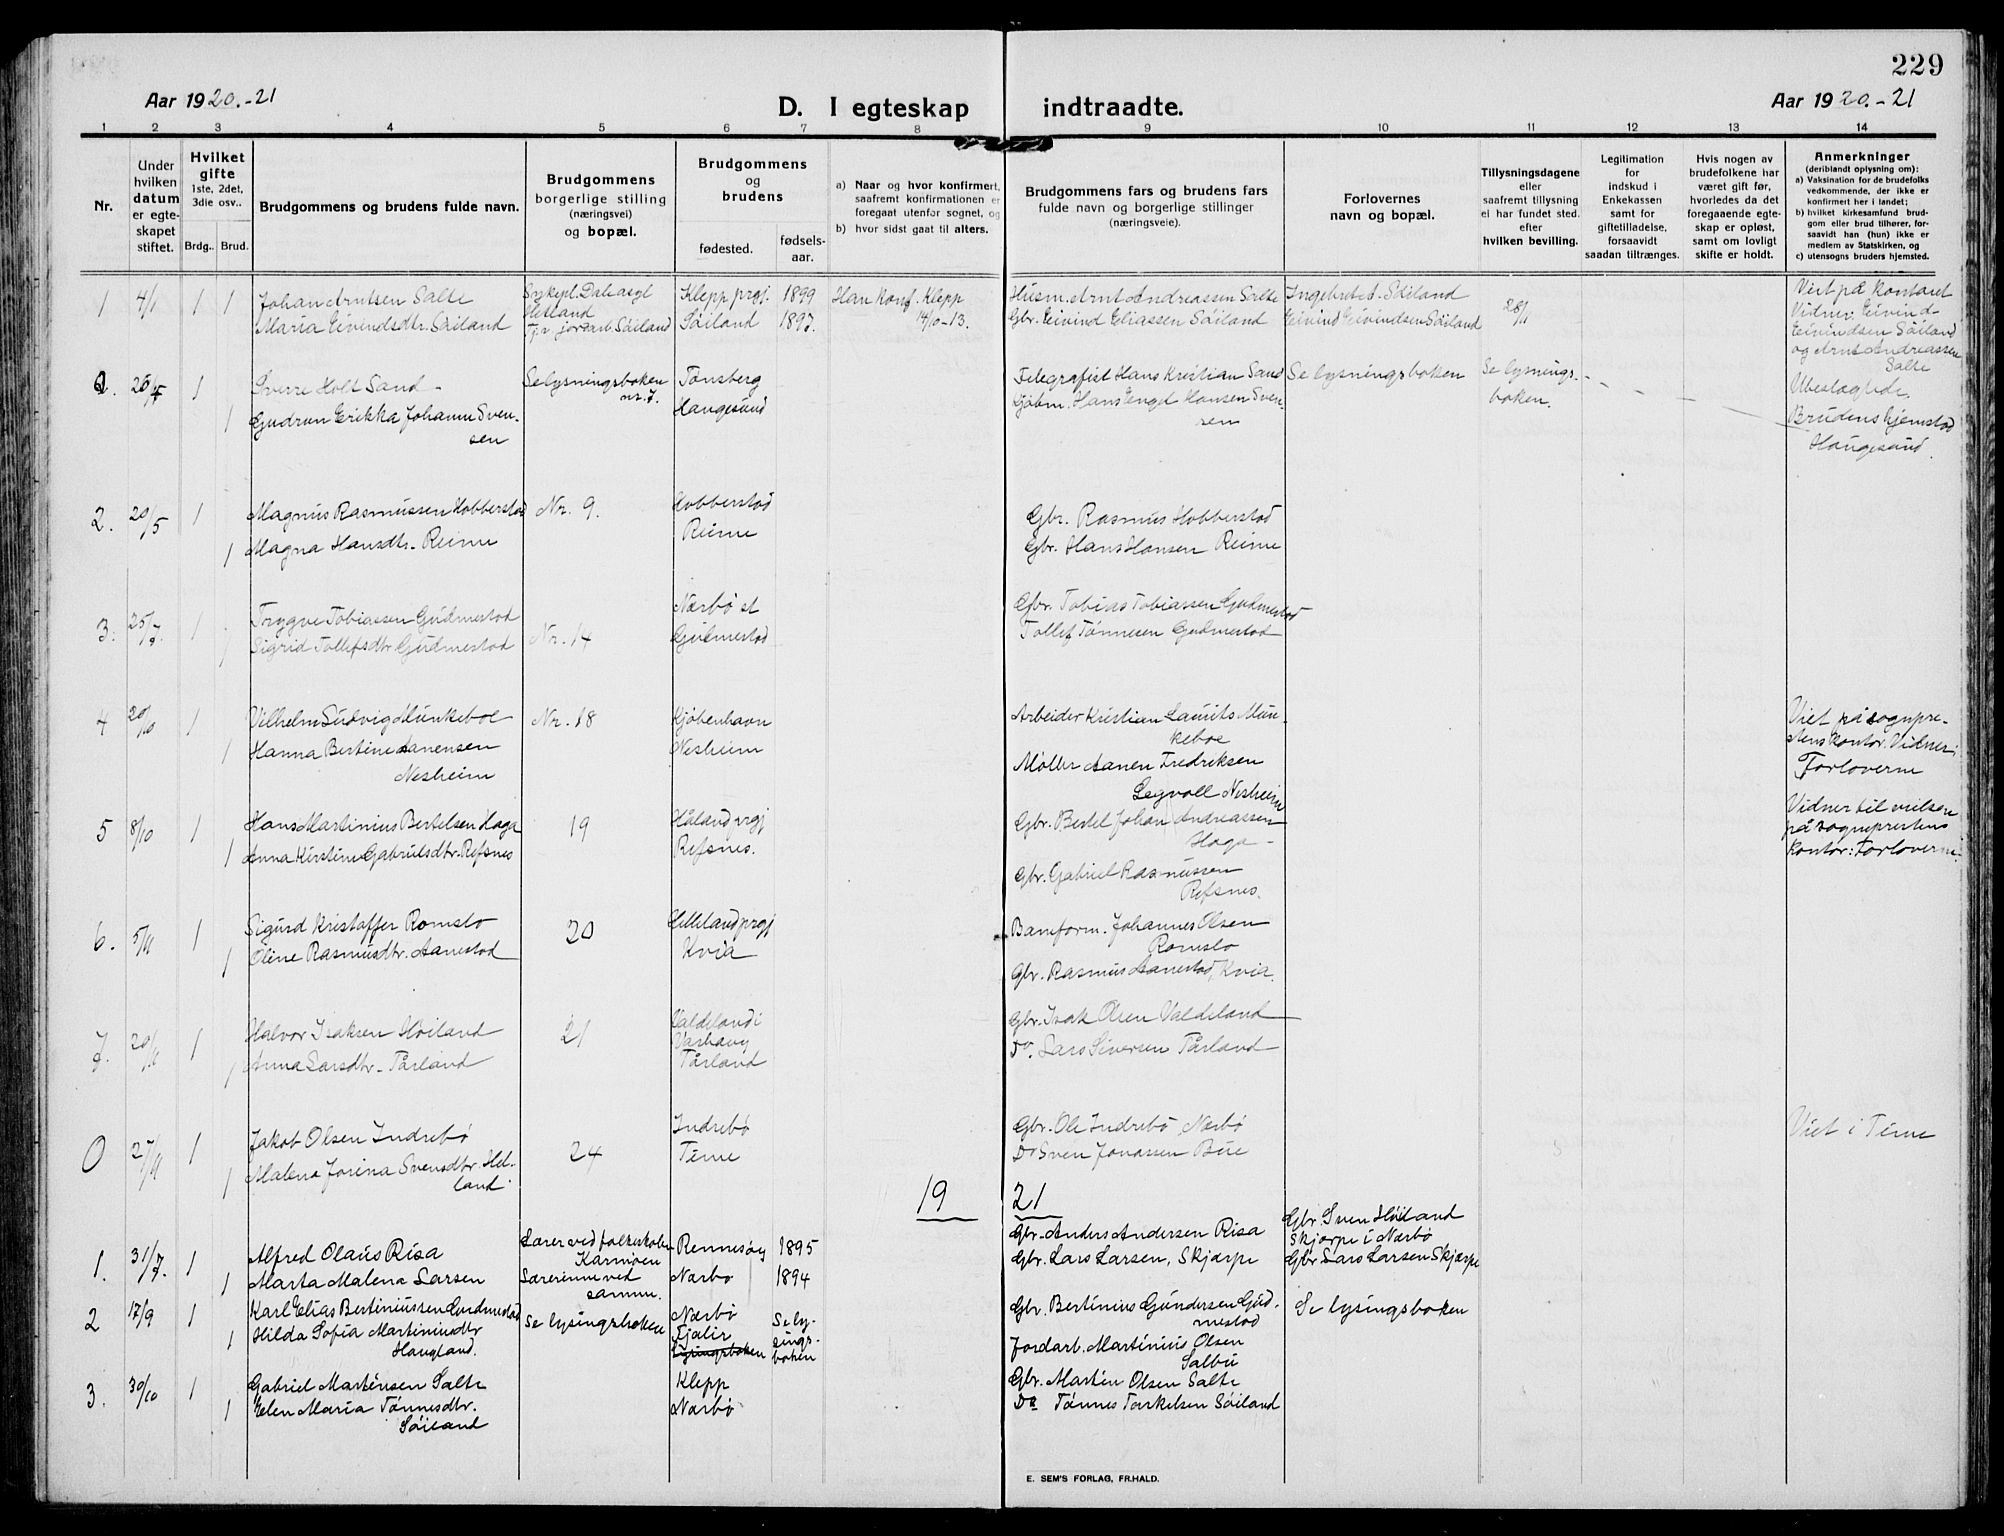 229
Aar 1920.-21
D. I egteskap indtraadte.
Aar 1920.-21
1 2 3 4 5 6 7 8 9 10 11 12 13 14
Nr.
Under hvilken datum er egteskapet stiftet.
Hvilket gifte 1ste, 2det, 3die osv..
Brdg.. Brud.
Brudgommens og brudens fulde navn.
Brudgommens borgerlige stilling (næringsvei) og bopæl.
Brudgommens og brudens
fødested.
fødselsaar.
a) Naar og hvor konfirmert, saafremt konfirmationen er foregaat utenfor sognet, og
b) hvor sidst gaat til alters.
Brudgommens fars og brudens fars fulde navn og borgerlige stillinger (næringsveie).
Forlovernes navn og bopæl.
Tillysningsdagene eller saafremt tillysning ei har fundet sted. efter hvilken bevilling.
Legitimation for indskud i Enkekassen samt for giftetilladelse, forsaavidt saadan tiltrænges.
Hvis nogen av brudefolkene har været gift før, hvorledes da det foregaaende egteskap er opløst, samt om lovligt skifte er holdt.
Anmerkninger (deriblandt oplysning om):
a) Vaksination for de brudefolks vedkommende, der ikke er konfirmert her i landet;
b) hvilket kirkesamfund brudgom eller brud tilhører, forsaavidt han (hun) ikke er medlem av Statskirken, og
c) utensogns bruders hjemsted.
1 4/1 1 1 Johan Arntsen Salte
Maria Eivindsdtr. Söiland
Klepp prgj. 1899
Söiland 1897.
Han konf. Klepp
14/10-13.
Husm. Arnt Andreassen Salte
Gbr. Eivind Eliassen Söiland
Ingebret A. Söiland
Eivind Eivindsen Söiland
28/11
Viet på kontoret
Vidner: Eivind
Eivindsen Söiland
og Arnt Andreassen
Salte
1 Sverre Holt Sand
1 Gudrun Erikka Johanne Svensen
Se lysningsboken
nr. 7.
Tønsberg
Haugesund
Telegrafist Hans Kristian Sand
Kjøbm. Hans Engel Hansen Svensen
Se lysningsboken
Se lysningsboken.
Ubeslegtede.
Brudens hjemsted
Haugesund.
2. 20/5 1 Magnus Rasmussen Hobberstad
1 Magna Hansdtr. Reime
Nr. 9.
Hobberstad
Reime
Gbr. Rasmus Hobberstad
Gbr. Hans Hansen Reime
3. 25/7. 1 Trygve Tobiassen Gudmestad
1 Sigrid Tollefsdtr Gudmestad
Nr. 14
Nærbö st
Gudmestad
Gbr. Tobias Tobiassen Gudmestad
Tollef Tönnesen Gudmestad
4 20/10 1 Vilhelm Ludvig Munkeboe
1 Hanna Bertine Aanensen
Nesheim
Nr. 18
Kjöbenhavn
Nesheim
Arbeider Kristian Laurits Munkeboe
Møller Aanen Fredriksen
Nesheim
Viet på sogneprestens kontor. Vidner:
Forloverne
5 8/10 1 Hans Martinius Bertelsen Haga
1 Anna Kirstine Gabrielsdtr. Refsnes
19
Håland prgj
Refsnes.
Gbr. Bertel Johan Andreassen
Haga
Gbr. Gabriel Rasmussen
Refsnes.
Vidner til vielsen
på sogneprestens
kontor: Forloverne.
6. 5/11 1 Sigurd Kristaffer Romslo
1 Oline Rasmusdtr. Aanestad
20
Helleland prgj
Kvia
Baneform. Johannes Olsen
Romslo
Gbr. Rasmus Aanestad, Kvia.
7. 20/11 1 Halvor Isaksen Höiland
1 Anna Larsdtr. Tårland
21
Valdeland i
Varhaug
Tårland
Gbr. Isak Olsen Valdeland
Do. Lars Siversen Tårland
0 27/11 1 Jakob Olsen Indrebö
1 Malena Jorina Svensdtr. Helland.
24
Indrebö
Time
Gbr. Ole Indrebö, Nærbö
Do Sven Jonassen Bue
Viet i Time
19 21
1. 31/7. 1 Alfred Olaus Risa
1 Marta Malena Larsen
Lærer ved folkeskolen
Karmöen
Lærerinne ved
samm.
Rennesöy 1895
Nærbø 1894
Gbr. Anders Andersen Risa
Gbr. Lars Larsen, Skjærpe
Gbr. Sven Höiland
Skjærpe i Nærbö
Gbr. Lars Larsen Skjærpe
2 17/9 1 Karl Elias Bertiniussen Gudmestad
1 Hilda Sofia Martiniusdtr
Haugland.
Se lysingsboken
Nærbö
Fjalir
Lysingsboken
Se lysingsboken
Gbr. Bertinius Gundersen Gudmestad
Jordarb. Martinius Olsen
Salbu
Se lysingsboken
3. 30/10 1 Gabriel Martensen Salte
1 Elen Maria Tönnesdtr.
Söiland
Klepp
Nærbö
Gbr. Martin Olsen Salte
Do Tönnes Torkelsen Söiland
E. SEM'S FORLAG, FR.HALD.